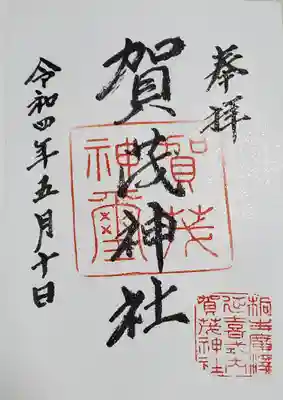 奉拝
賀茂神社
賀茂
神璽
桐生廣澤
延喜式内
賀茂神社
令和四年五月十日